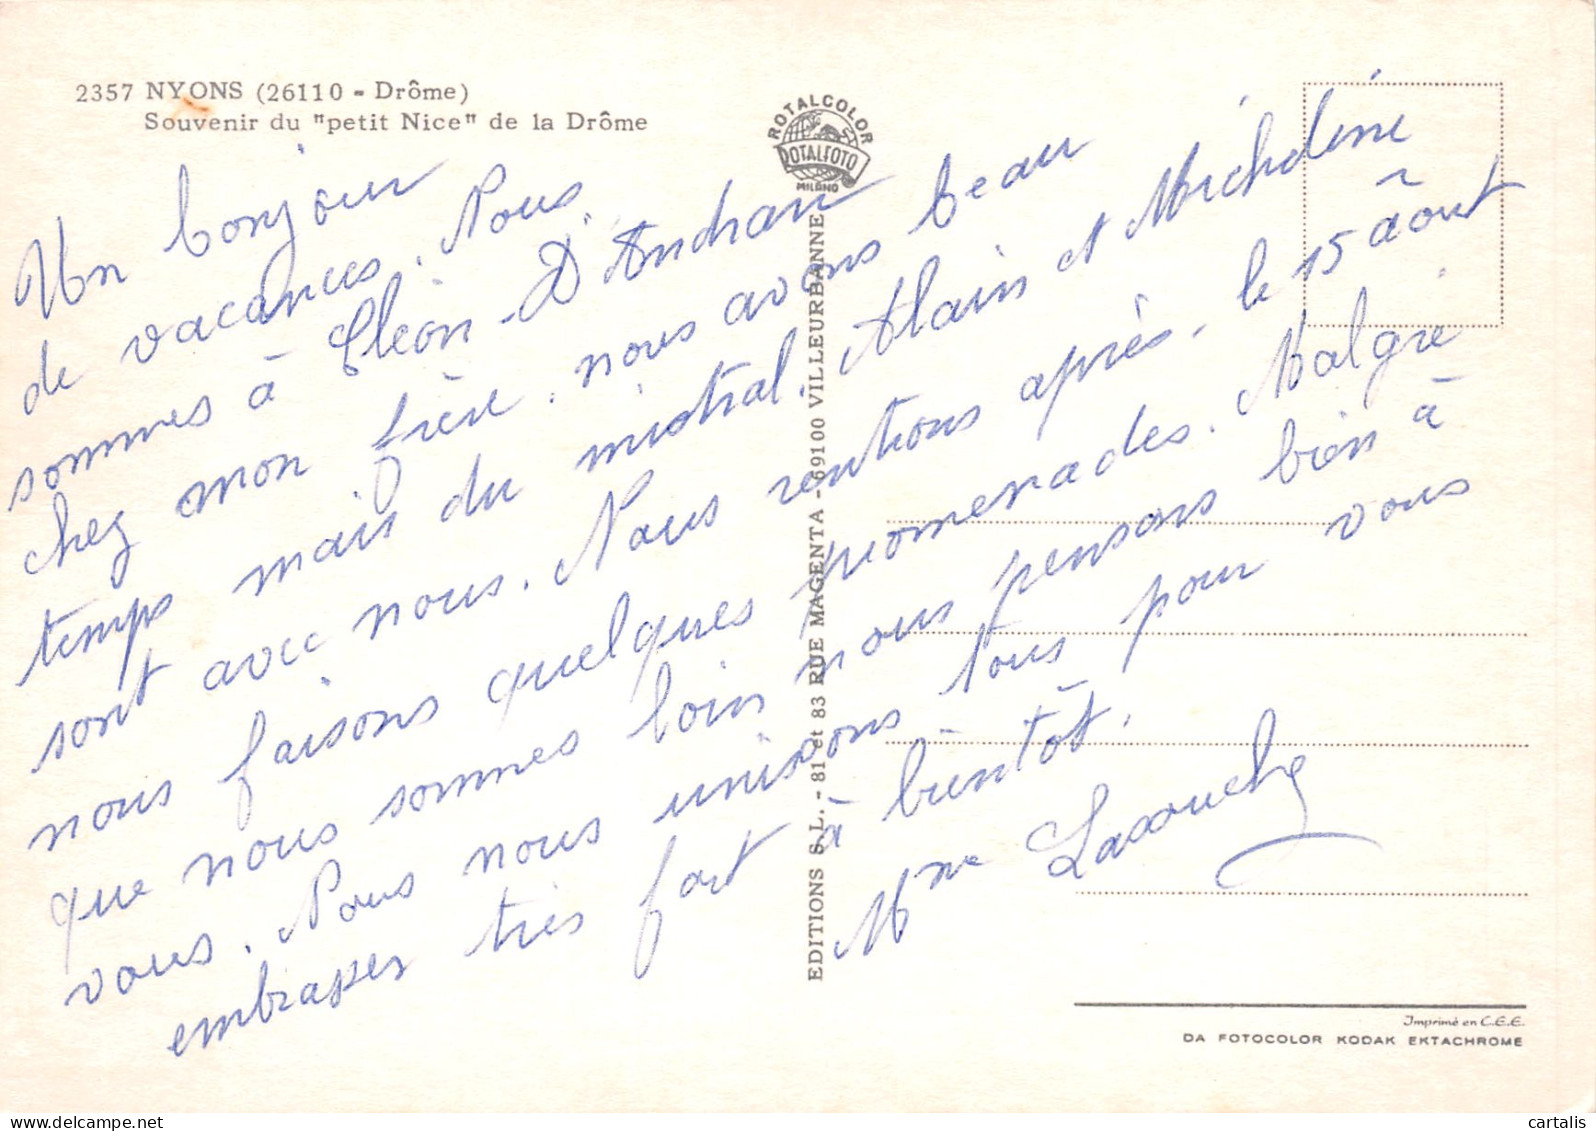 2357 NYONS (26110 - Drôme)
Souvenir du "petit Nice" de la Drôme
ROTALCOLOR
ROTALFOTO
MILANO
Un bonjour
de vacances. Nous
sommes à Cléon-D'Andran
chez mon frère. nous avons beau
temps mais du mistral. Alain et Micheline
sont avec nous. Nous rentrons après. le 15 août
nous faisons quelques promenades. Malgré
que nous sommes loin nous pensons bien à
vous. Nous nous unissons tous pour vous
embrasser très fort à bientôt.
Mme
EDITIONS S.L. - 81 et 83 RUE MAGENTA - 69100 VILLEURBANNE
Imprimé en C.E.E.
DA FOTOCOLOR KODAK EKTACHROME
cartalis